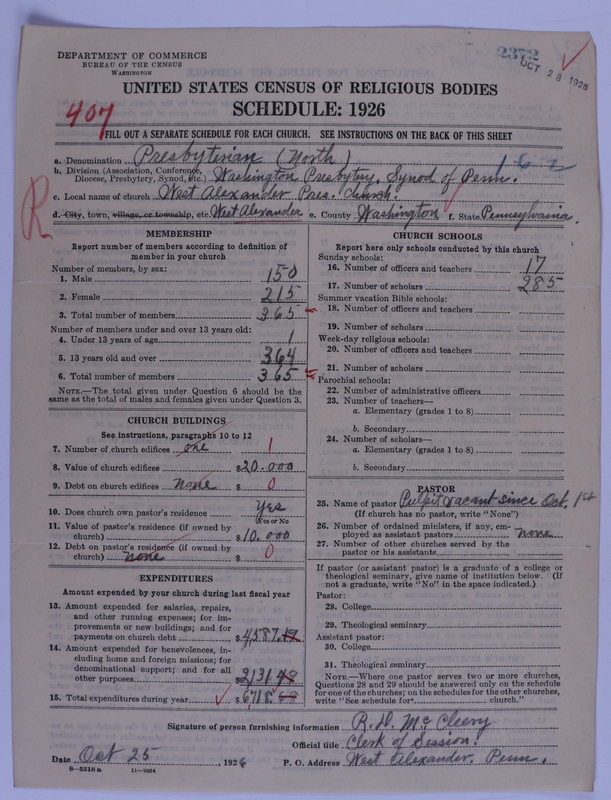 2372
OCT 28 1926
DEPARTMENT OF COMMERCE
BUREAU OF THE CENSUS
WASHINGTON
UNITED STATES CENSUS OF RELIGIOUS BODIES
SCHEDULE: 1926
407
FILL OUT A SEPARATE SCHEDULE FOR EACH CHURCH. SEE INSTRUCTIONS ON THE BACK OF THIS SHEET
a. Denomination Presbyterian (North)
b. Division (Association, Conference, Diocese, Presbytery, Synod, etc.) Washington Presbytery, Synod of Penn.
c. Local name of church West Alexander Pres. Church.
R
d. City, town, village, or township, etc. West Alexander e. County Washington f. State Pennsylvania.
MEMBERSHIP
Report number of members according to definition of
member in your church
Number of members, by sex:
1. Male 150
2. Female 215
3. Total number of members 365
Number of members under and over 13 years old:
4. Under 13 years of age 1
5. 13 years old and over 364
6. Total number of members 365
NOTE.—The total given under Question 6 should be
same as the total of males and females given under Question 3.
CHURCH BUILDINGS
See instructions, paragraphs 10 to 12
7. Number of church edifices one 1
8. Value of church edifices $20.000
9. Debt on church edifices none $ 0
10. Does church own pastor's residence Yes
Yes or No
11. Value of pastor's residence (if owned by
church) $10.000
12. Debt on pastor's residence (if owned by
church) none $ 0
EXPENDITURES
Amount expended by your church during last fiscal year
13. Amount expended for salaries, repairs,
and other running expenses; for im-
provements or new buildings; and for
payments on church debt $4587.
14. Amount expended for benevolences, in-
cluding home and foreign missions; for
denominational support; and for all
other purposes 2131
15. Total expenditures during year $6718
CHURCH SCHOOLS
Report here only schools conducted by this church
Sunday schools:
16. Number of officers and teachers 17
17. Number of scholars 285
Summer vacation Bible schools:
18. Number of officers and teachers
19. Number of scholars
Week-day religious schools:
20. Number of officers and teachers
21. Number of scholars
Parochial schools:
22. Number of administrative officers
23. Number of teachers—
a. Elementary (grades 1 to 8)
b. Secondary
24. Number of scholars—
a. Elementary (grades 1 to 8)
b. Secondary
PASTOR
25. Name of pastor Pulpit vacant since Oct. 1st
(If church has no pastor, write "None")
26. Number of ordained ministers, if any, em-
ployed as assistant pastors none
27. Number of other churches served by the
pastor or his assistants
If pastor (or assistant pastor) is a graduate of a college or
theological seminary, give name of institution below. (If
not a graduate, write "No" in the space indicated.)
Pastor:
28. College
29. Theological seminary
Assistant pastor:
30. College
31. Theological seminary
NOTE.—Where one pastor serves two or more churches,
Questions 28 and 29 should be answered only on the schedule
for one of the churches; on the schedules for the other churches,
write "See schedule for church."
Signature of person furnishing information R. D. McCleery
Official title Clerk of Session.
Date Oct 25, 1926 P. O. Address West Alexander, Penn.
8—5518a 11—9034